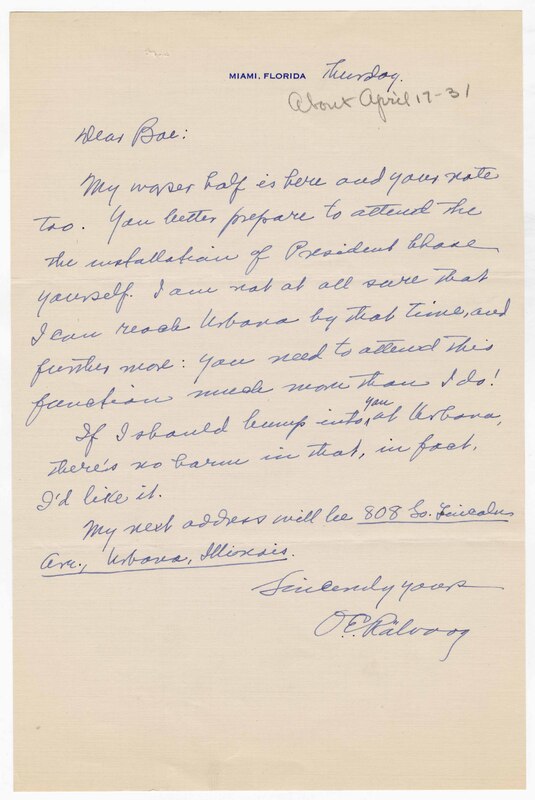 MIAMI, FLORIDA Thursday.
About April 17-31
Dear Boe:
My worser half is here and your note
too. You better prepare to attend the
the installation of President Chase
yourself. I am not at all sure that
I can reach Urbana by that time, and
further more: you need to attend this
function much more than I do!
If I should bump into you at Urbana,
there's no harm in that, in fact,
I'd like it.
My next address will be 808 So. Lincoln
Ave., Urbana, Illinois.
Sincerely yours
O.E. Rölvaag